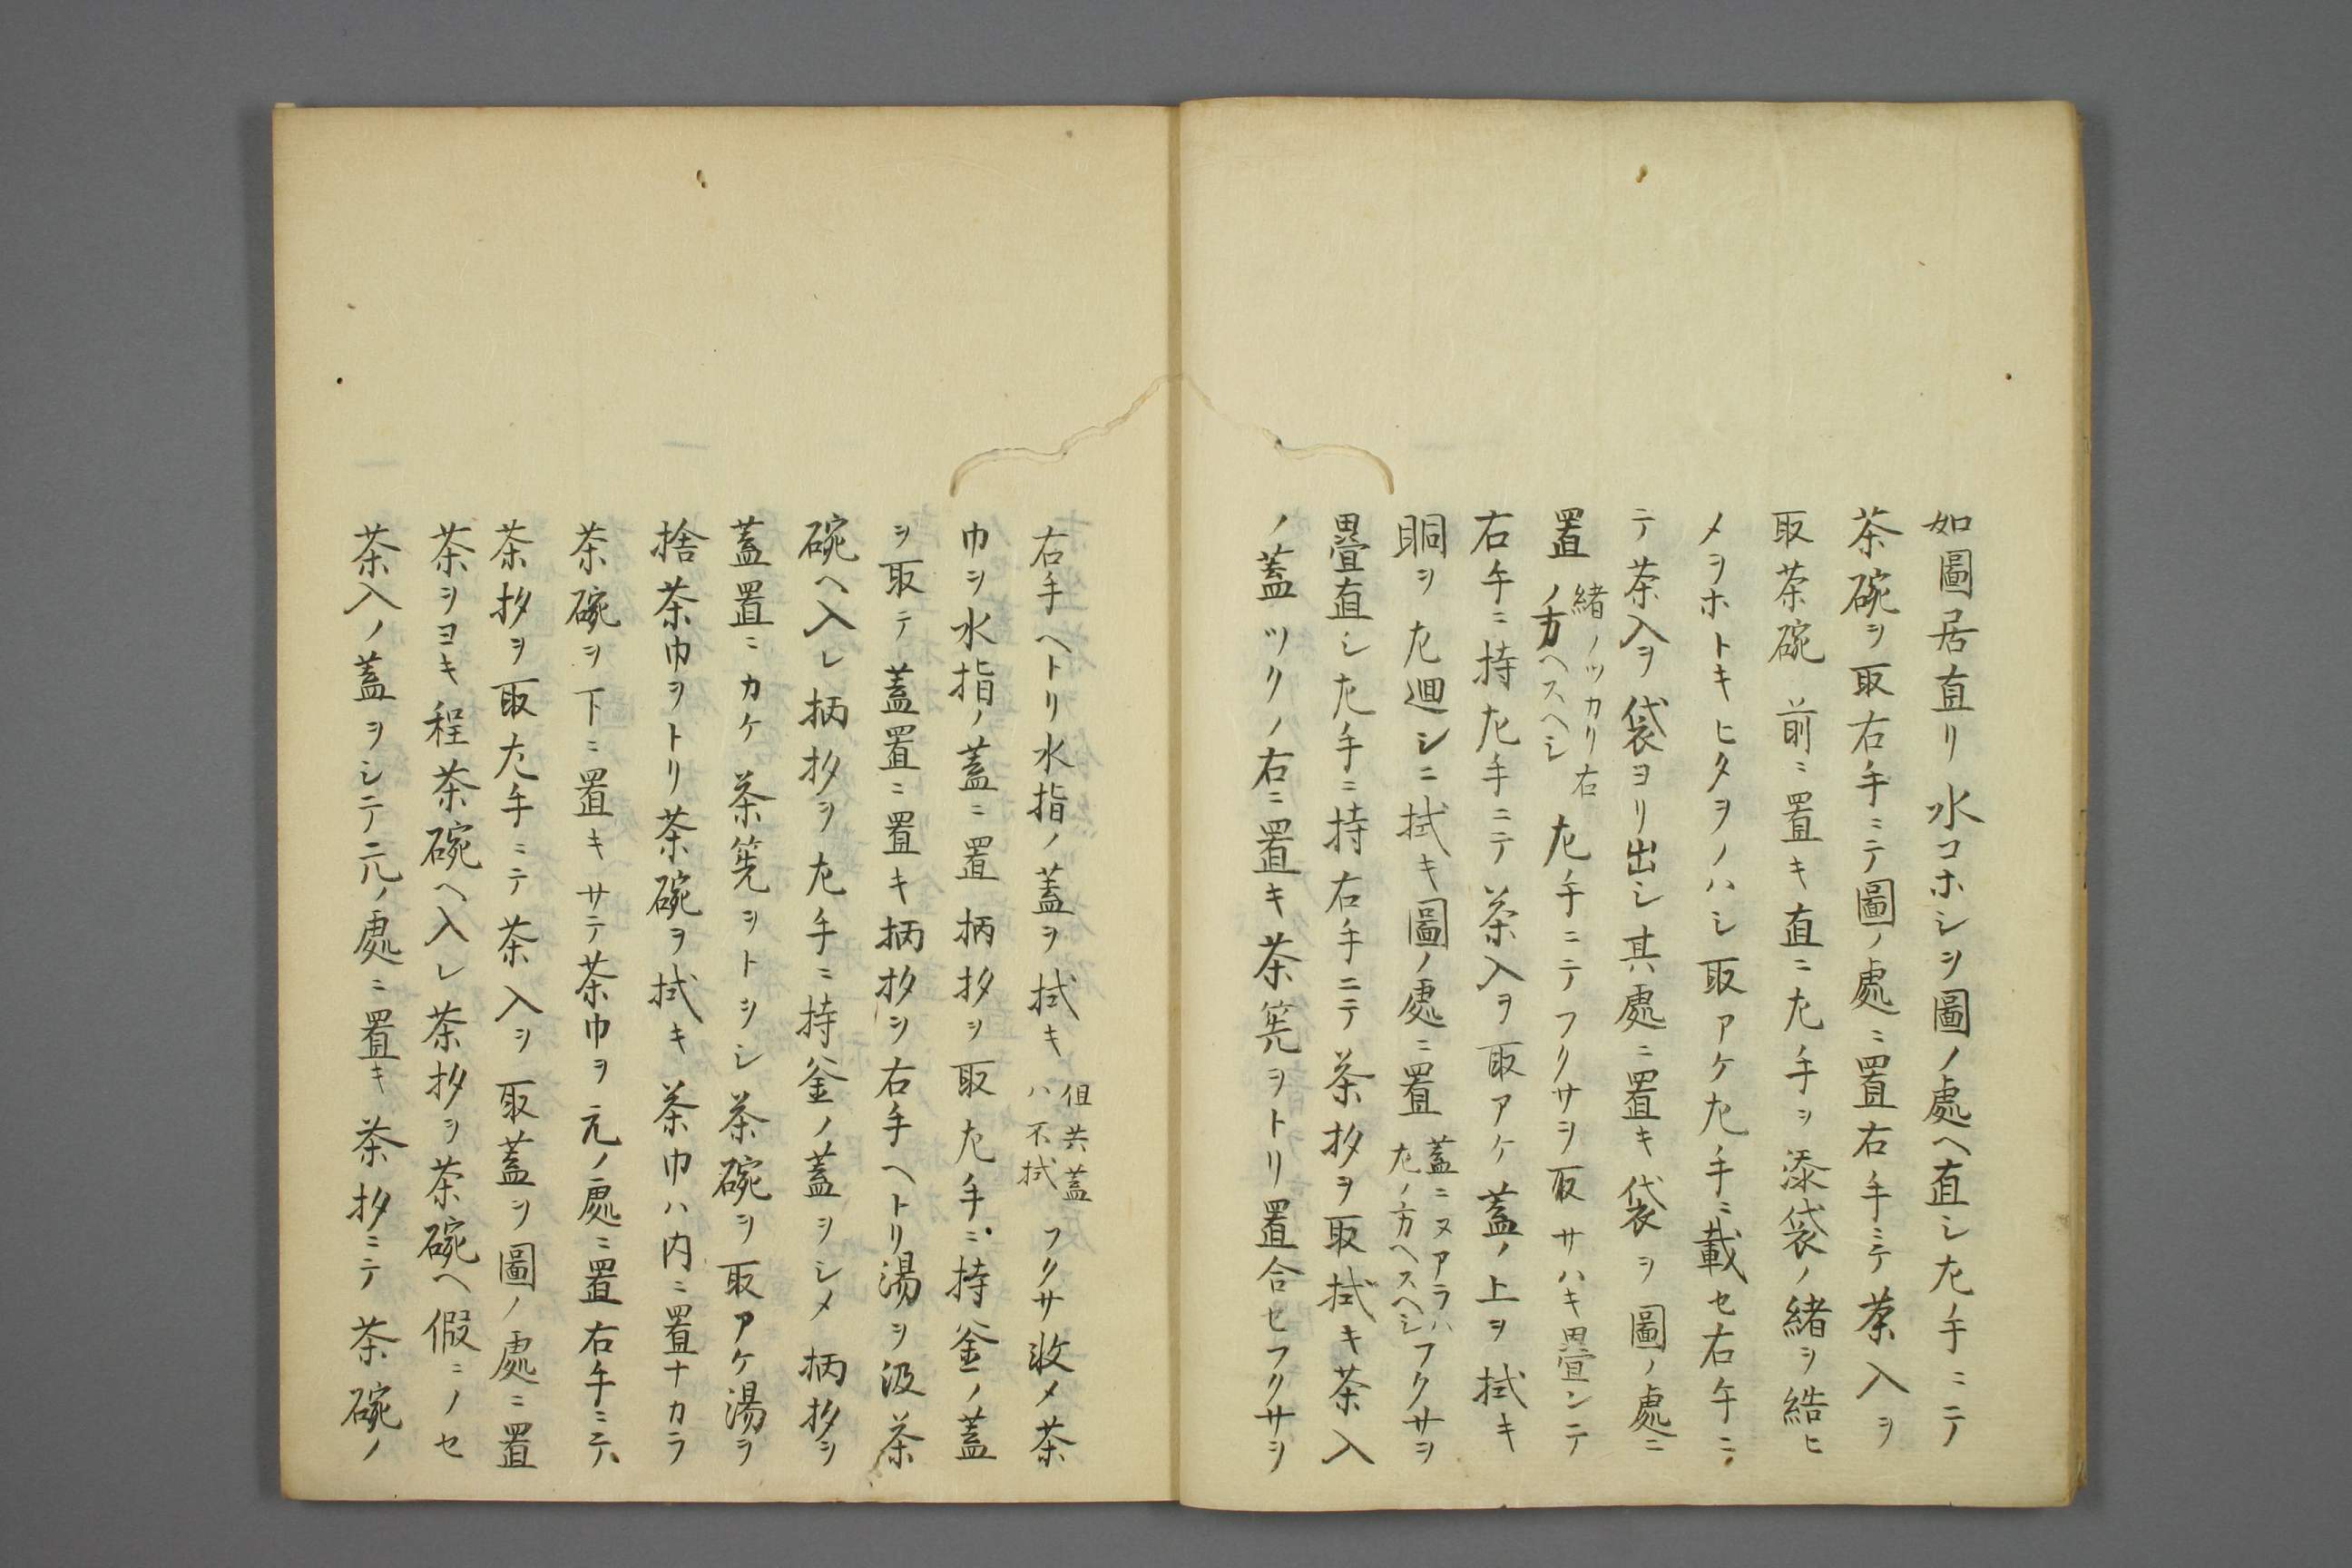 如圖居直リ水コホシヲ圖ノ處ヘ直シ左手ニテ
茶碗ヲ取右手ニテ圖ノ處ニ置右手ニテ茶入ヲ
取茶碗前ニ置キ直ニ左手ヲ添袋ノ緒ヲ結ヒ
メヲホトキヒタヲノハシ取アケ左手ニ載セ右手ニ
テ茶入ヲ袋ヨリ出シ其處ニ置キ袋ヲ圖ノ處ニ
置
緒ノツカリ右
ノ方ヘスヘシ
左手ニテフクサヲ取サハキ畳ンテ
右手ニ持左手ニテ茶入ヲ取アケ蓋ノ上ヲ拭キ
胴ヲ左廻シニ拭キ圖ノ處ニ置
蓋ニヌアラハ
左ノ方ヘスヘシ
フクサヲ
畳直シ左手ニ持右手ニテ茶杓ヲ取拭キ茶入
ノ蓋ツクノ右ニ置キ茶筅ヲトリ置合セフクサヲ
右手ヘトリ水指ノ蓋ヲ拭キ
但共蓋
ハ不拭
フクサ收メ茶
巾ヲ水指ノ蓋ニ置柄杓ヲ取左手ニ持釜ノ蓋
ヲ取テ蓋置ニ置キ柄杓ヲ右手ヘトリ湯ヲ汲茶
碗ヘ入レ柄杓ヲ左手ニ持釜ノ蓋ヲシメ柄杓ヲ
蓋置ニカケ茶筅ヲトヲシ茶碗ヲ取アケ湯ヲ
捨茶巾ヲトリ茶碗ヲ拭キ茶巾ハ内ニ置ナカラ
茶碗ヲ下ニ置キサテ茶巾ヲ元ノ處ニ置右手ニテ
茶杓ヲ取左手ニテ茶入ヲ取蓋ヲ圖ノ處ニ置
茶ヲヨキ程茶碗ヘ入レ茶杓ヲ茶碗ヘ假ニノセ
茶入ノ蓋ヲシテ元ノ處ニ置キ茶杓ニテ茶碗ノ